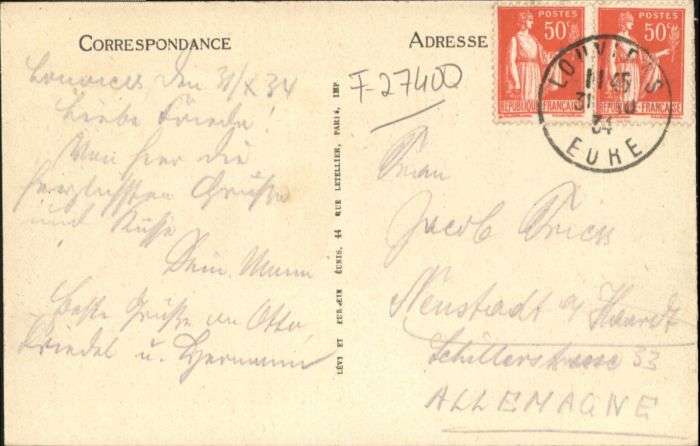 CORRESPONDANCE
Louviers den 31/X 34
Liebe Frieda!
Von hier die
herzlichsten Grüße
und Küsse
Dein Mann
Beste Grüße an Otto,
Friedel u. Hermann
LÉVY ET NEURDEIN RÉUNIS, 44 RUE LETELLIER, PARIS, IMP
ADRESSE
F-27400
POSTES
50c
RÉPUBLIQUE FRANÇAISE
POSTES
50c
FRANÇAISE
LOUVIERS
11 45
31
34
EURE
Frau
Jacob
Neustadt a/Haardt
Schillerstrasse 33
ALLEMAGNE